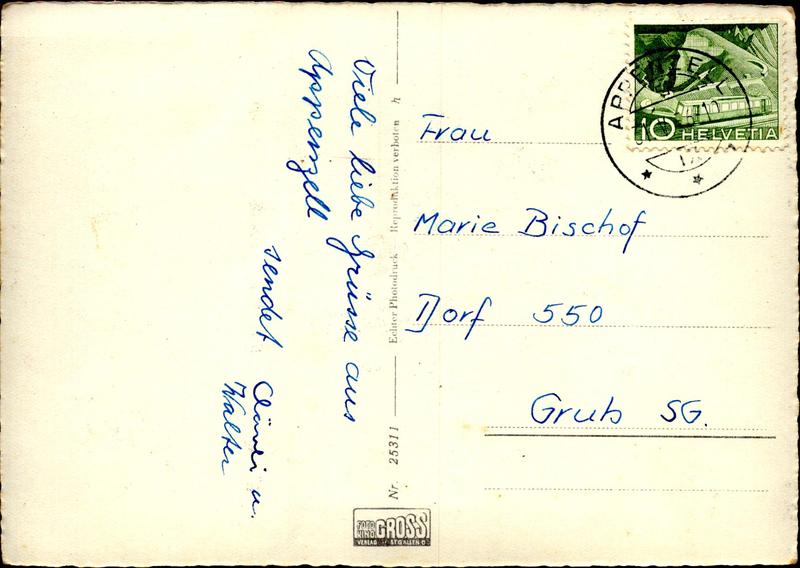 Viele liebe Grüsse aus
Appenzell
sendet
u.
Walter
Nr. 25311
Echter Photodruck
Reproduktion verboten
h
FOTO
KINO
GROSS
VERLAG
ST GALLEN O
APPENZELL
10 HELVETIA
Frau
Marie Bischof
Dorf 550
Grub SG.